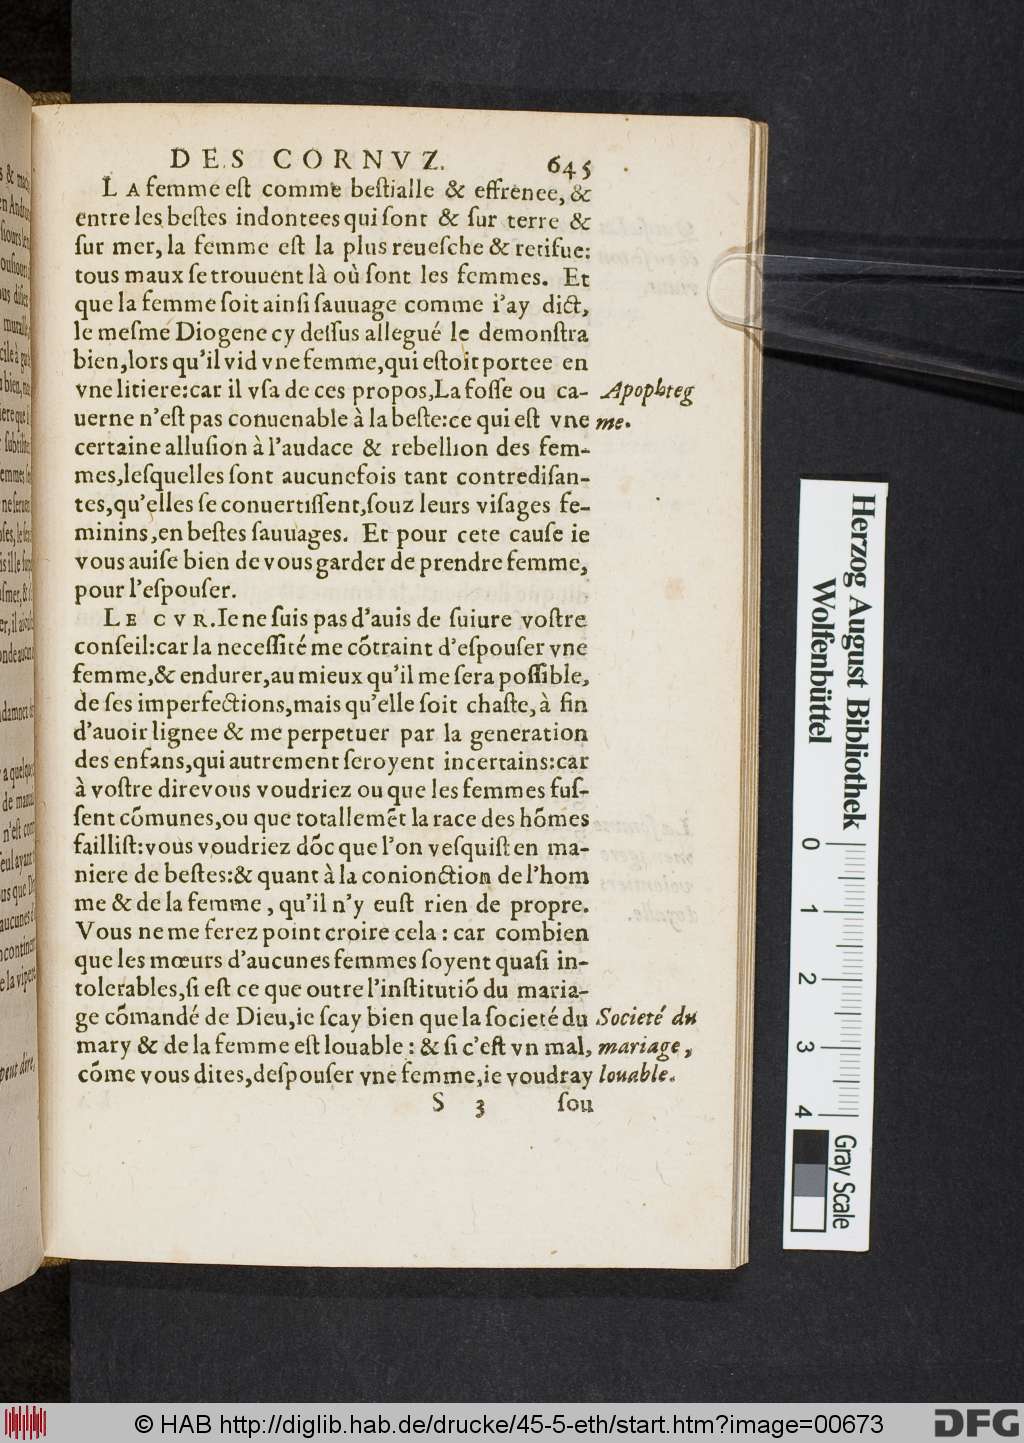 DES CORNVZ. 645
LA femme eſt comme beſtialle & effrenee, &
entre les beſtes indontees qui ſont & ſur terre &
ſur mer, la femme eſt la plus reueſche & retifue:
tous maux ſe trouuent là où ſont les femmes. Et
que la femme ſoit ainſi ſauuage comme i'ay dict,
le meſme Diogene cy deſſus allegué le demonſtra
bien, lors qu'il vid vne femme, qui eſtoit portee en
vne litiere: car il vſa de ces propos, La foſſe ou ca-
uerne n'eſt pas conuenable à la beſte: ce qui eſt vne
certaine alluſion à l'audace & rebellion des fem-
mes, leſquelles ſont aucunefois tant contrediſan-
tes, qu'elles ſe conuertiſſent, ſouz leurs viſages fe-
minins, en beſtes ſauuages. Et pour cete cauſe ie
vous auiſe bien de vous garder de prendre femme,
pour l'eſpouſer.
LE CVR. Ie ne ſuis pas d'auis de ſuiure voſtre
conſeil: car la neceſſité me cõtraint d'eſpouſer vne
femme, & endurer, au mieux qu'il me ſera poſſible,
de ſes imperfections, mais qu'elle ſoit chaſte, à fin
d'auoir lignee & me perpetuer par la generation
des enfans, qui autrement ſeroyent incertains: car
à voſtre dire vous voudriez ou que les femmes fuſ-
ſent cõmunes, ou que totallemẽt la race des hõmes
failliſt: vous voudriez dõc que l'on veſquiſt en ma-
niere de beſtes: & quant à la conionction de l'hom
me & de la femme, qu'il n'y euſt rien de propre.
Vous ne me ferez point croire cela : car combien
que les mœurs d'aucunes femmes ſoyent quaſi in-
tolerables, ſi eſt ce que outre l'inſtitutiõ du maria-
ge cõmandé de Dieu, ie ſcay bien que la ſocieté du
mary & de la femme eſt louable : & ſi c'eſt vn mal,
cõme vous dites, deſpouſer vne femme, ie voudray
S 3 ſou
Apophteg
me.
Societé du
mariage,
louable.
Herzog August Bibliothek
Wolfenbüttel
0 1 2 3 4
Gray Scale
© HAB http://diglib.hab.de/drucke/45-5-eth/start.htm?image=00673
DFG